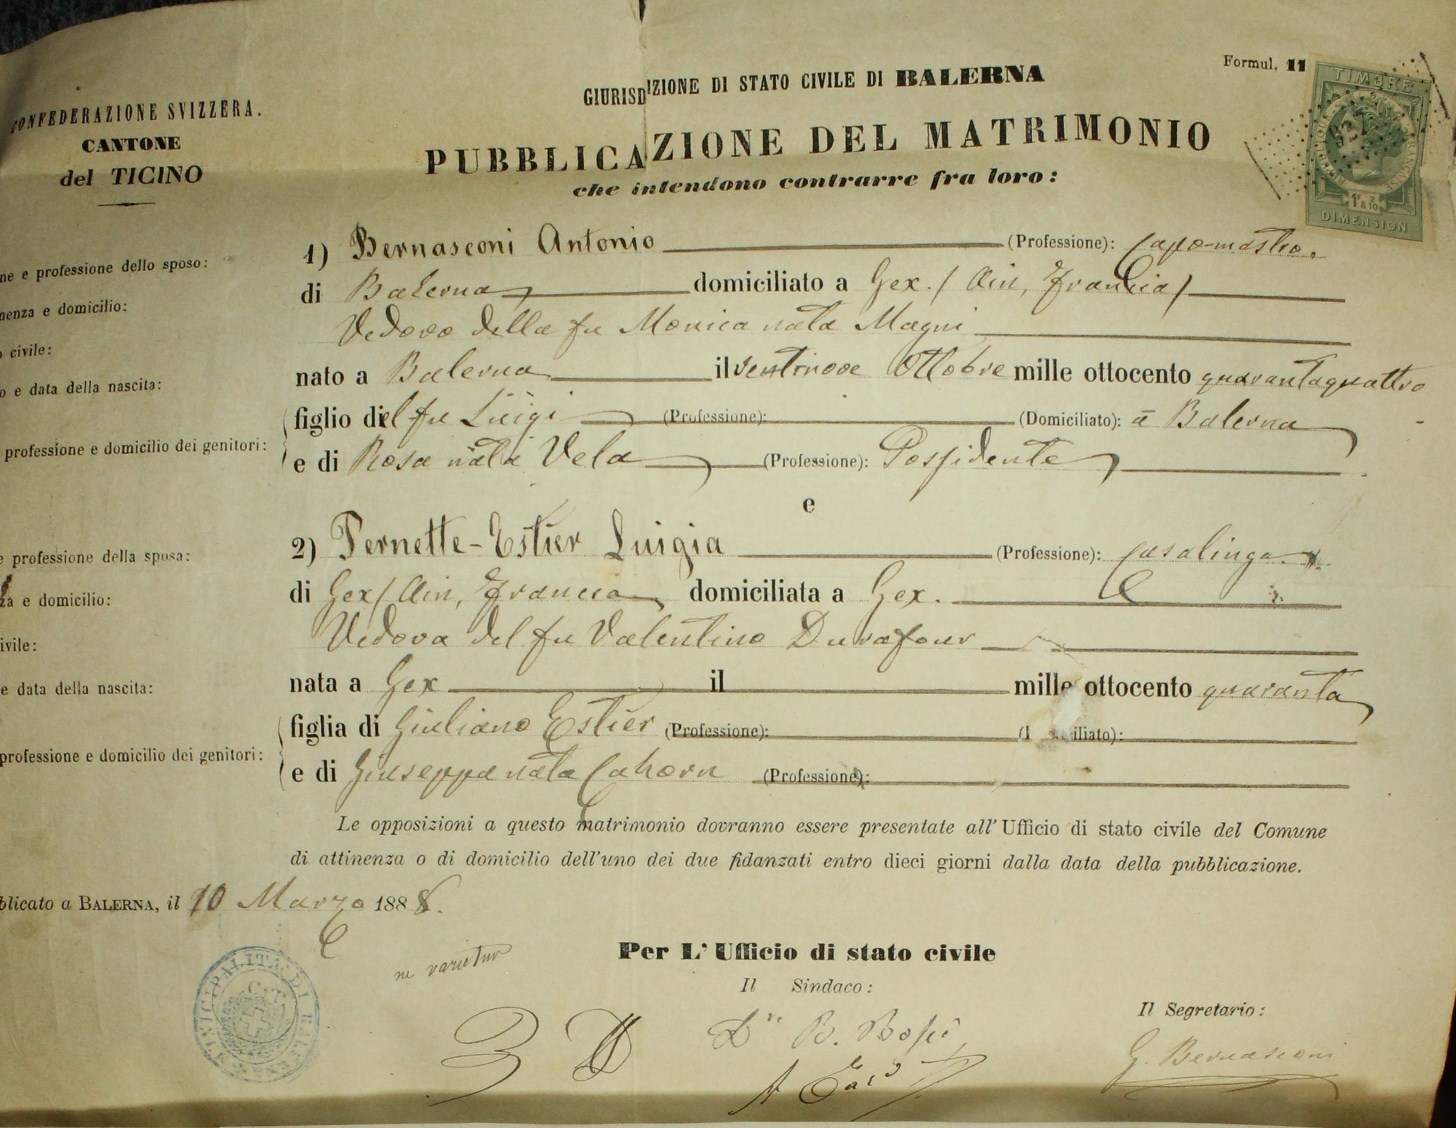 Formul. 11
GIURISDIZIONE DI STATO CIVILE DI BALERNA
CONFEDERAZIONE SVIZZERA.
CANTONE
del TICINO
PUBBLICAZIONE DEL MATRIMONIO
che intendono contrarre fra loro:
TIMBRE
1F & 2/10
DIMENSION
ne e professione dello sposo:
1) Bernasconi Antonio (Professione): Capo-mastro.
nenza e domicilio:
di Balerna domiciliato a Gex. (Ain, Francia)
o civile:
Vedovo della fu Monica nata Magni
o e data della nascita:
nato a Balerna il ventinove Ottobre mille ottocento quarantaquattro
professione e domicilio dei genitori:
figlio del fu Luigi (Professione): (Domiciliato): a Balerna
e di Rosa nata Vela (Professione): Possidente
e
e professione della sposa:
2) Pernette-Estier Luigia (Professione): casalinga
za e domicilio:
di Gex (Ain, Francia) domiciliata a Gex.
ivile:
Vedova del fu Valentino Durafour
e data della nascita:
nata a Gex il mille ottocento quaranta
professione e domicilio dei genitori:
figlia di Giuliano Estier (Professione): iliato):
e di Giuseppa nata Cahorn (Professione):
Le opposizioni a questo matrimonio dovranno essere presentate all' Ufficio di stato civile del Comune
di attinenza o di domicilio dell'uno dei due fidanzati entro dieci giorni dalla data della pubblicazione.
blicato a BALERNA, il 10 Marzo 1888.
Per L' Ufficio di stato civile
ne varietur
Il Sindaco:
Il Segretario:
MUNICIPALITÀ DI BALERNA
C. T.
Dr. B. Bossi
G. Bernasconi